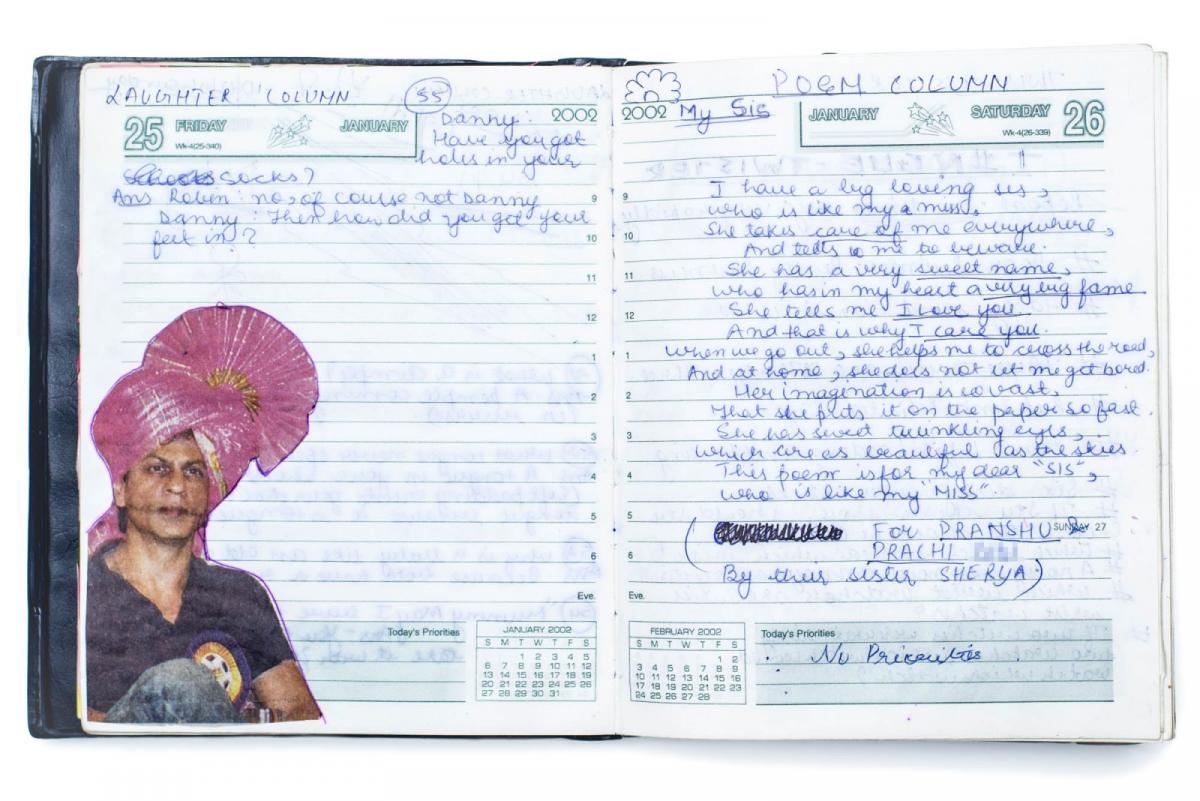 LAUGHTER COLUMN
55
25 FRIDAY JANUARY 2002
Wk-4(25-340)
Danny:
Have you got
holes in your
socks?
Ans Robin: no, of course not Danny
Danny: Then how did you get your
feet in?
9
10
11
12
1
2
3
4
5
6
Eve.
Today's Priorities
JANUARY 2002
S M T W T F S
1 2 3 4 5
6 7 8 9 10 11 12
13 14 15 16 17 18 19
20 21 22 23 24 25 26
27 28 29 30 31
POEM COLUMN
2002 My Sis JANUARY SATURDAY 26
Wk-4(26-339)
9
I have a big loving sis,
who is like my a miss,
10
She takes care of me everywhere,
And tells me to beware.
11
She has a very sweet name,
who has in my heart a very big fame
12
She tells me I love you.
And that is why I care you.
1
when we go out, she helps me to cross the road,
And at home, she does not let me get bored.
2
Her imagination is so vast,
That she puts it on the paper so fast.
3
She has sweet twinkling eyes,
which are as beautiful as the skies
4
This poem is for my dear "SIS",
who is like my "MISS".
5
(FOR PRANSHU &
SUNDAY 27
6
PRACHI
By their sister SHERYA)
Eve.
FEBRUARY 2002
S M T W T F S
1 2
3 4 5 6 7 8 9
10 11 12 13 14 15 16
17 18 19 20 21 22 23
24 25 26 27 28
Today's Priorities
No Priorities